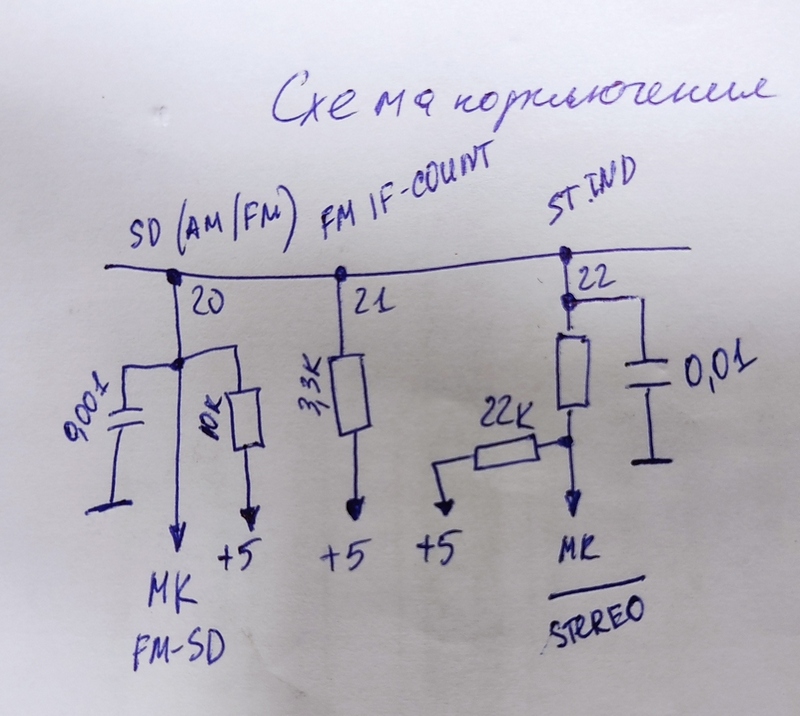 Схема подключения
SD (AM/FM) FM IF-COUNT ST.IND
20 21 22
0,001 10к 3,3к 22к 0,01
+5 +5 +5
МК МК
FM-SD STEREO